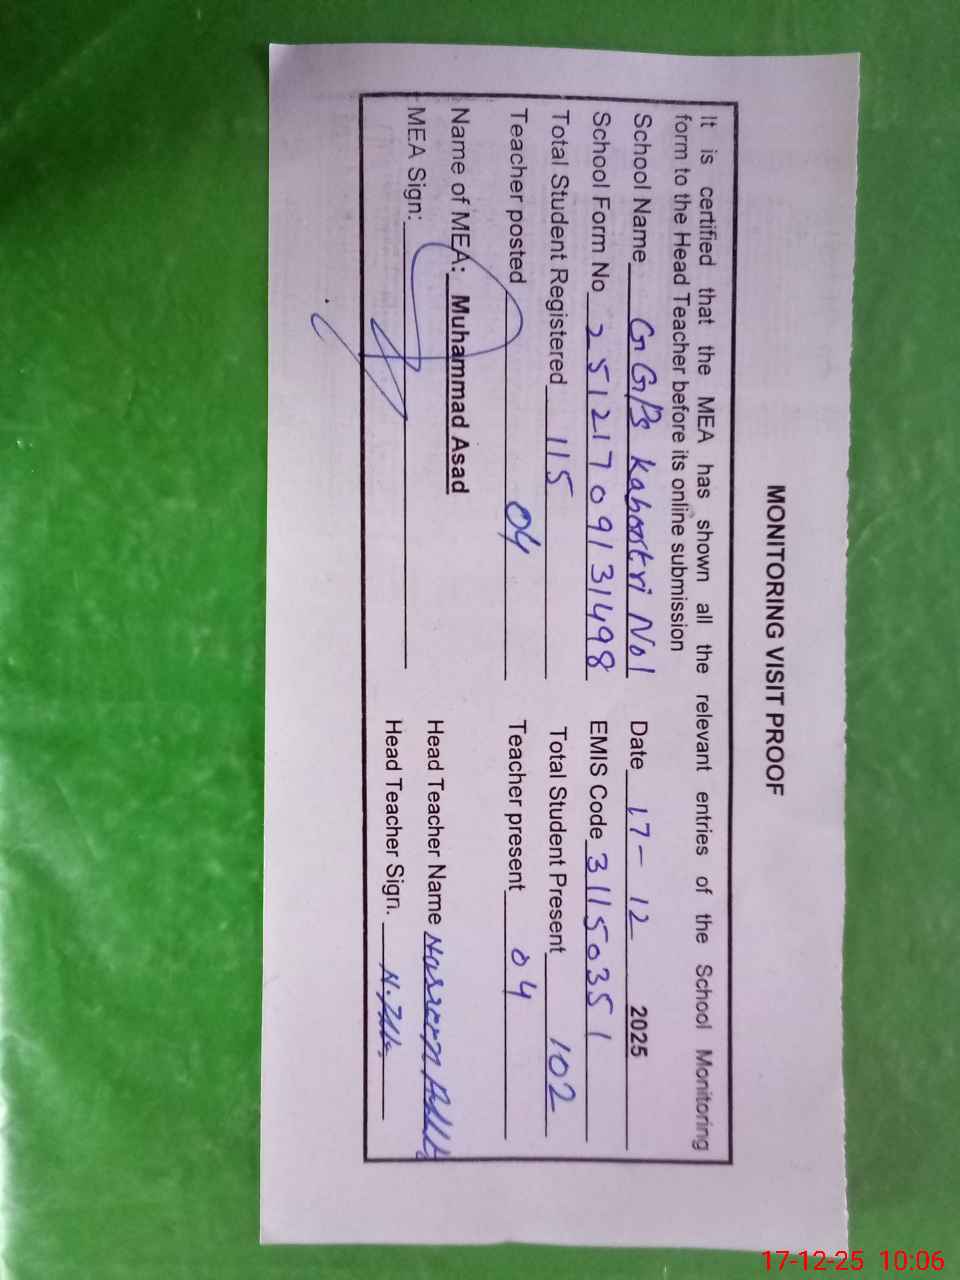 MONITORING VISIT PROOF
It is certified that the MEA has shown all the relevant entries of the School Monitoring
form to the Head Teacher before its online submission
School Name GGPS Kabootri No1 Date 17-12 2025
School Form No 25121709131498 EMIS Code 31150351
Total Student Registered 115 Total Student Present 102
Teacher posted 04 Teacher present 04
Name of MEA: Muhammad Asad Head Teacher Name
MEA Sign: Head Teacher Sign.
17-12-25 10:06